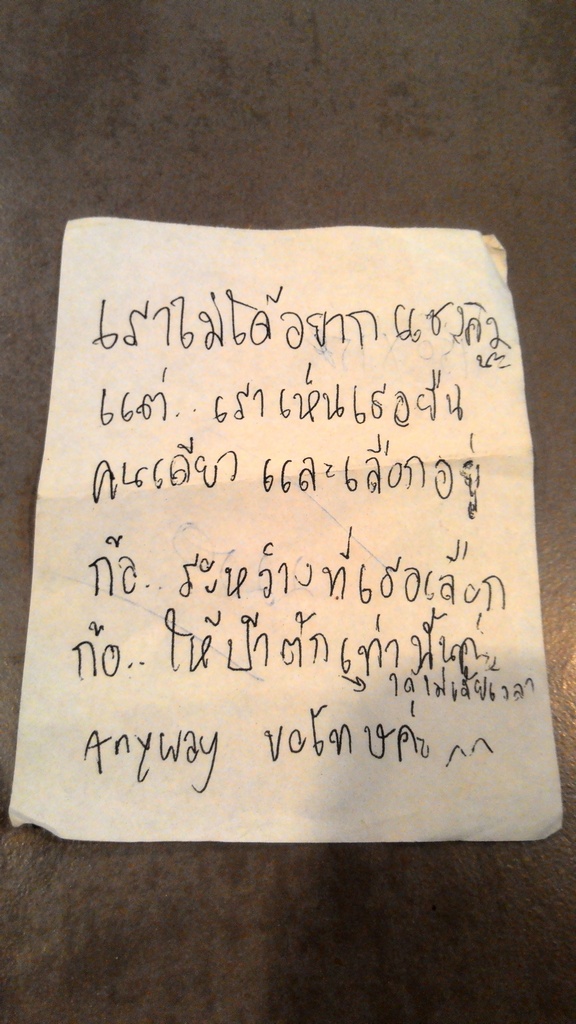 เราไม่ได้อยากแซงคิว
นะ
แต่.. เราเห็นเธอยืน
คนเดียว และเลือกอยู่
ก้อ.. ระหว่างที่เธอเลือก
ก้อ.. ให้ป้าตักเท่านั้นค่ะ
ได้ไม่เสียเวลา
Anyway ขอโทษค่ะ ^^